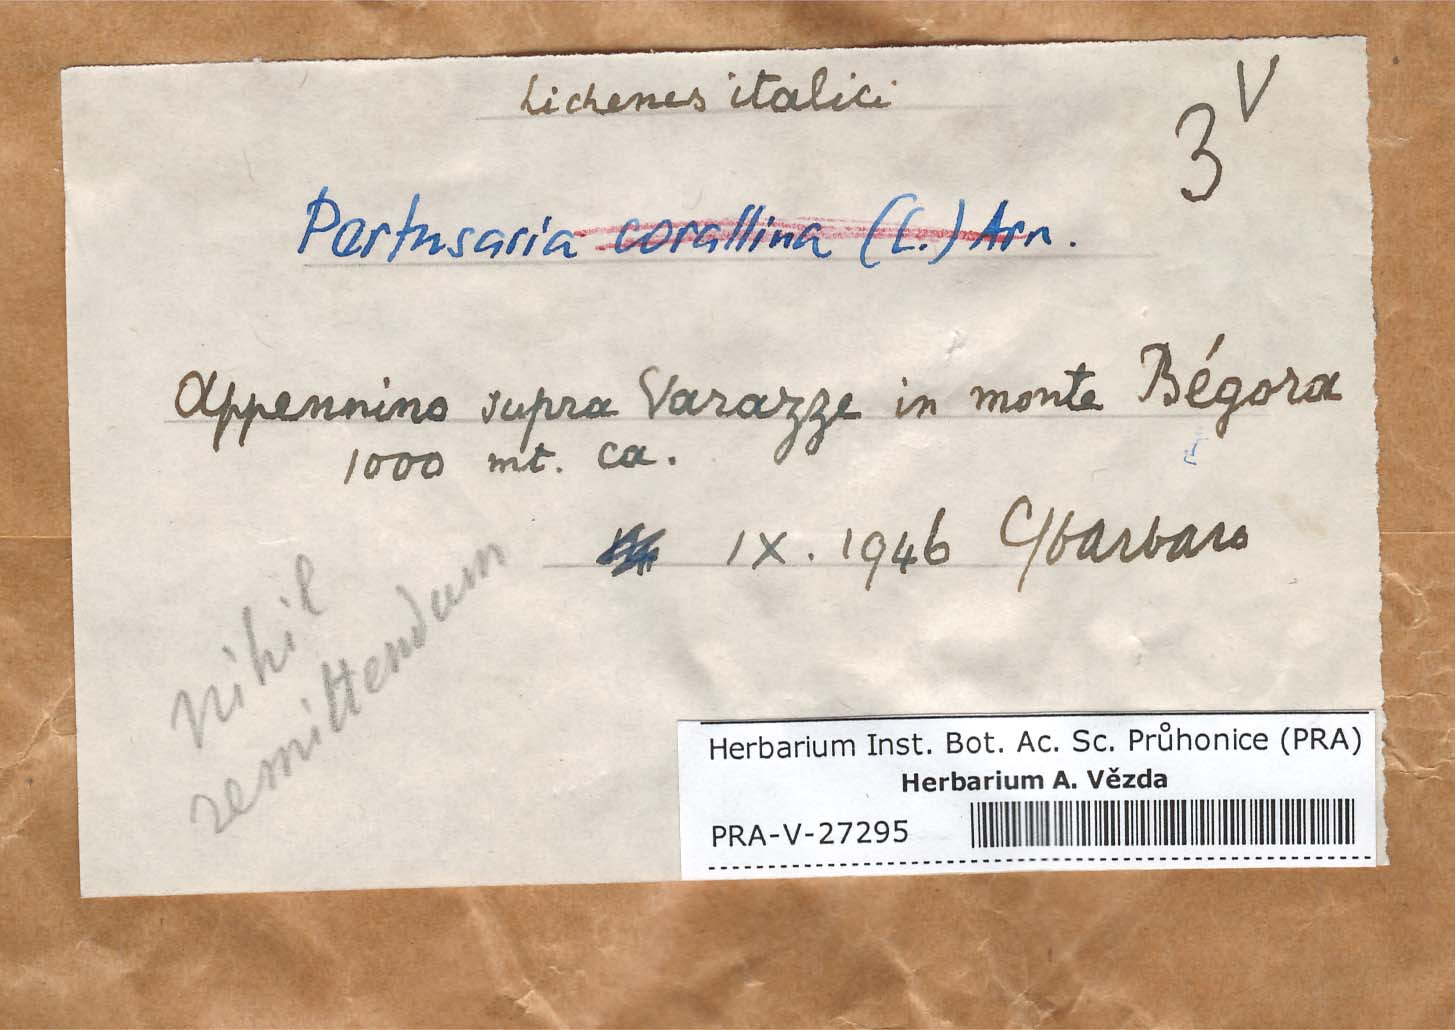 Lichenes italici
3 V
Pertusaria corallina (L.) Arn.
Appennino supra Varazze in monte Bégora
1000 mt. ca.
IX. 1946 C Sbarbaro
nihil
remittendum
Herbarium Inst. Bot. Ac. Sc. Průhonice (PRA)
Herbarium A. Vězda
PRA-V-27295